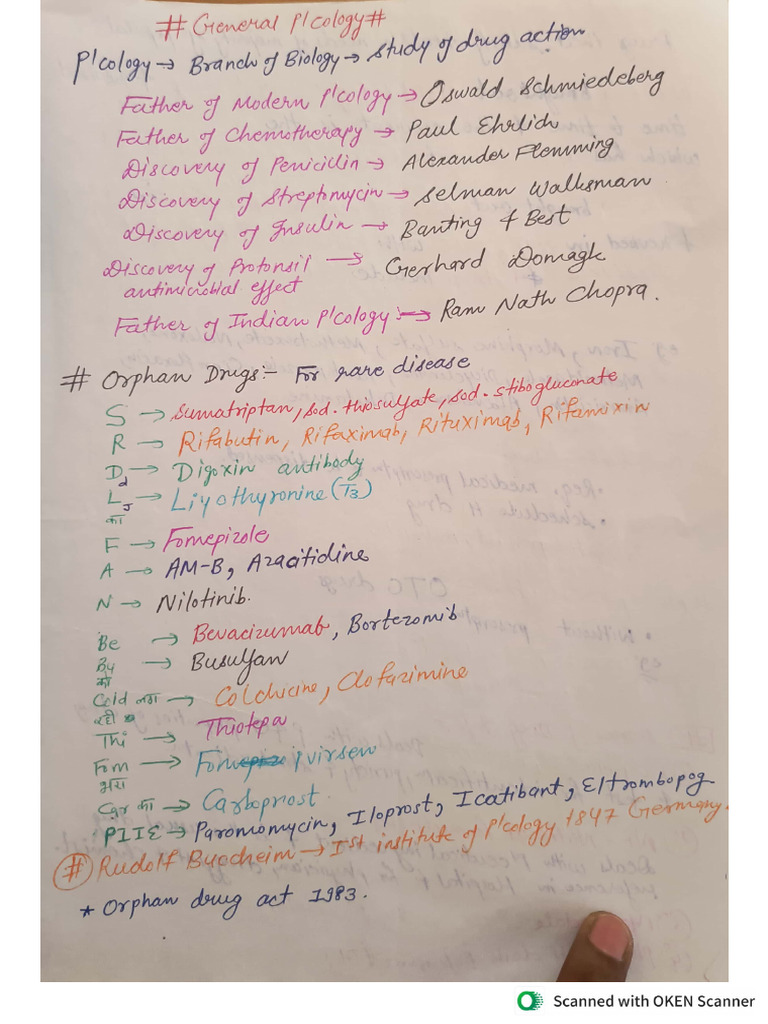 # General P'cology #
P'cology → Branch of Biology → study of drug action
Father of Modern P'cology → Oswald Schmiedeberg
Father of Chemotherapy → Paul Ehrlich
Discovery of Penicilin → Alexander Flemming
Discovery of Streptomycin → Selman Walksman
Discovery of Insulin → Banting & Best
Discovery of Protonsil → Gerhard Domagk
antimicrobial effect
Father of Indian P'cology :→ Ram Nath Chopra.
# Orphan Drugs:- For rare disease
S → Sumatriptan, sod. thiosulfate, sod. stibogluconate
R → Rifabutin, Rifaximab, Rituximab, Rifamixin
D → Digoxin antibody
L → Liyothyronine (T3)
का
F → Fomepizole
A → AM-B, Azacitidine
N → Nilotinib.
Be → Bevacizumab, Bortezomib
By → Busulfan
को
Cold लग → Colchicine, Clofazimine
रही
Thi → Thiotepa
Fom → Fomivirsen
भरा
Car का → Carboprost
PIIE → Paromomycin, Iloprost, Icatibant, Eltrombopog.
# Rudolf Bucheim → Ist institute of P'cology 1847 Germany.
* Orphan drug act 1983.
Scanned with OKEN Scanner